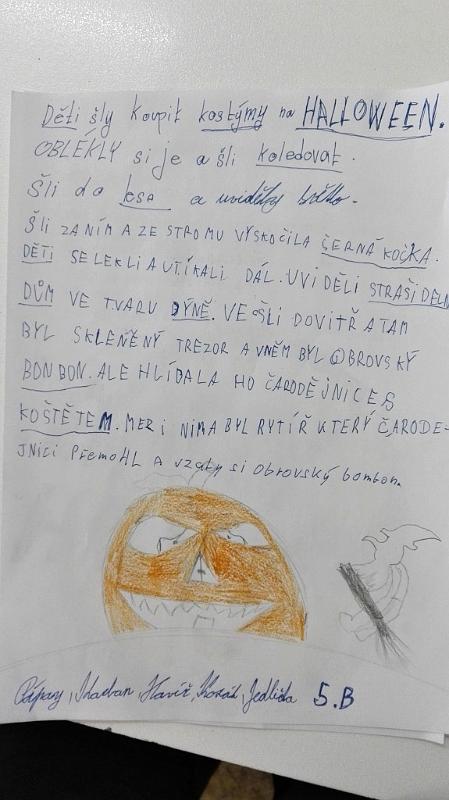 Děti šly koupit kostýmy na HALLOWEEN.
OBLÉKLY si je a šli koledovat.
Šli do lesa a uviděly světlo.
ŠLI ZA NÍM A ZE STROMU VYSKOČILA ČERNÁ KOČKA.
DĚTI SE LEKLI A UTÍKALI DÁL. UVIDĚLI STRAŠIDELN
DŮM VE TVARU DÝNĚ. VEŠLI DOVITŘ A TAM
BYL SKLENĚNÝ TREZOR A VNĚM BYL OBROVSKÝ
BONBON. ALE HLÍDALA HO ČARODĚJNICE S
KOŠTĚTEM. MEZI NIMA BYL RYTÍŘ KTERÝ ČARODĚ-
JNICI PŘEMOHL A vzaly si obrovský bombon.
5.B